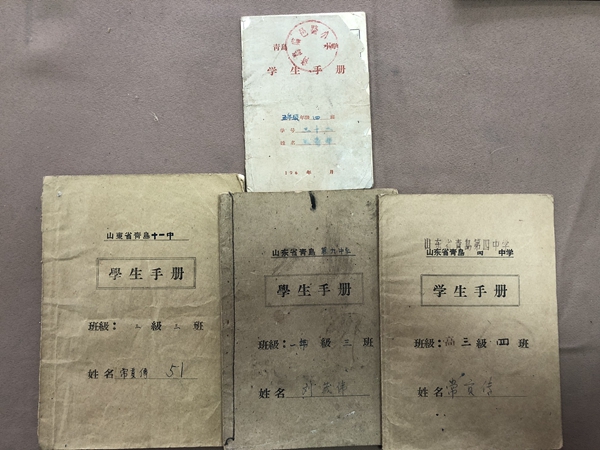 青島
学生手册
五年级 年级 四 班
学号 三十二
姓名
196 年 月
山東省青島十一中
學生手册
班級：二級三班
姓名 常貢傳 51
山东省青島第九中学
學生手册
班級：一年級三班
姓名
山东省青島第四中学
山东省青島 四 中学
学生手册
班級：高三級四班
姓名